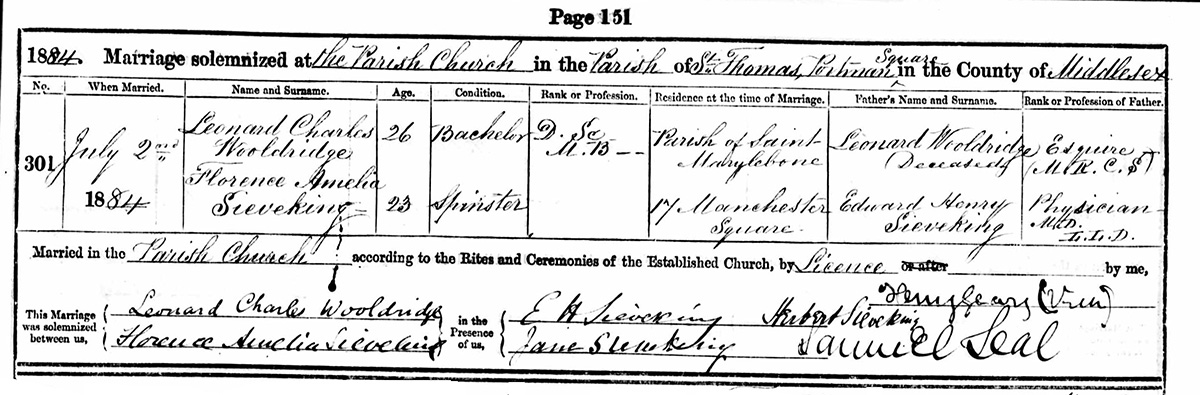 Page 151
1884. Marriage solemnized at the Parish Church in the Parish of St. Thomas, Portman Square in the County of Middlesex
No. When Married. Name and Surname. Age. Condition. Rank or Profession. Residence at the time of Marriage. Father's Name and Surname. Rank or Profession of Father.
301 July 2nd 1884 Leonard Charles Wooldridge 26 Bachelor D. Sc M. B Parish of Saint Marylebone Leonard Wooldridge (Deceased) Esquire (M. R. C. S)
Florence Amelia Sieveking 23 Spinster 17 Manchester Square Edward Henry Sieveking Physician M.D. L.L.D.
Married in the Parish Church according to the Rites and Ceremonies of the Established Church, by Licence or after by me,
This Marriage was solemnized between us, Leonard Charles Wooldridge in the Presence of us, E H Sieveking Herbert Sieveking
Florence Amelia Sieveking Jane Sieveking Samuel Seal